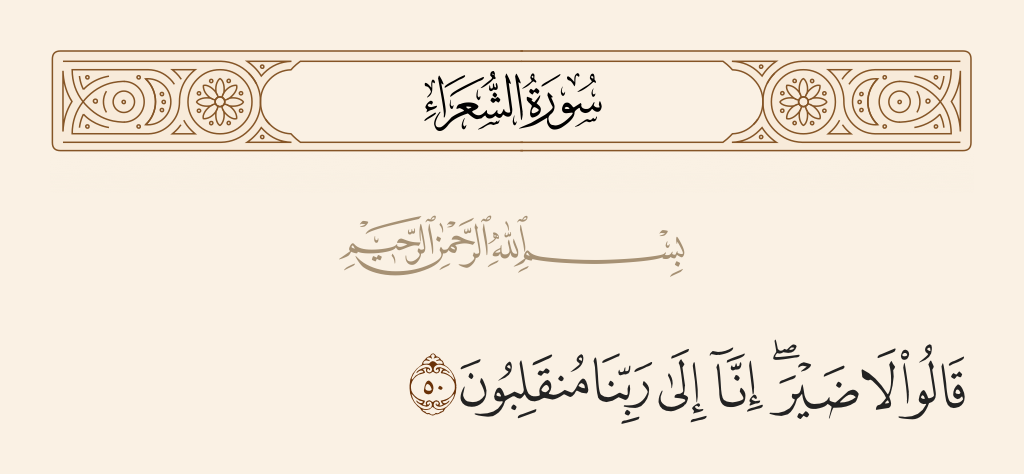 سُورَةُ الشُّعَرَاءِ
بِسْمِ ٱللَّهِ ٱلرَّحْمَٰنِ ٱلرَّحِيمِ
قَالُوا۟ لَا ضَيْرَ ۖ إِنَّآ إِلَىٰ رَبِّنَا مُنقَلِبُونَ ٥٠